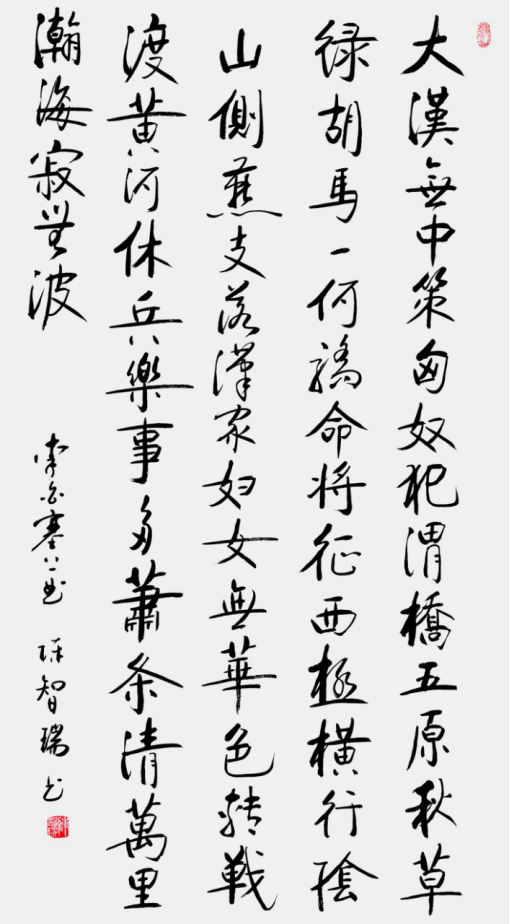 大漢無中策匈奴犯渭橋五原秋草
绿胡馬一何驕命将征西極橫行陰
山側燕支落漢家妇女無華色转戰
渡黄河休兵樂事多蕭条清萬里
瀚海寂無波
李白塞上曲 陈智瑞书